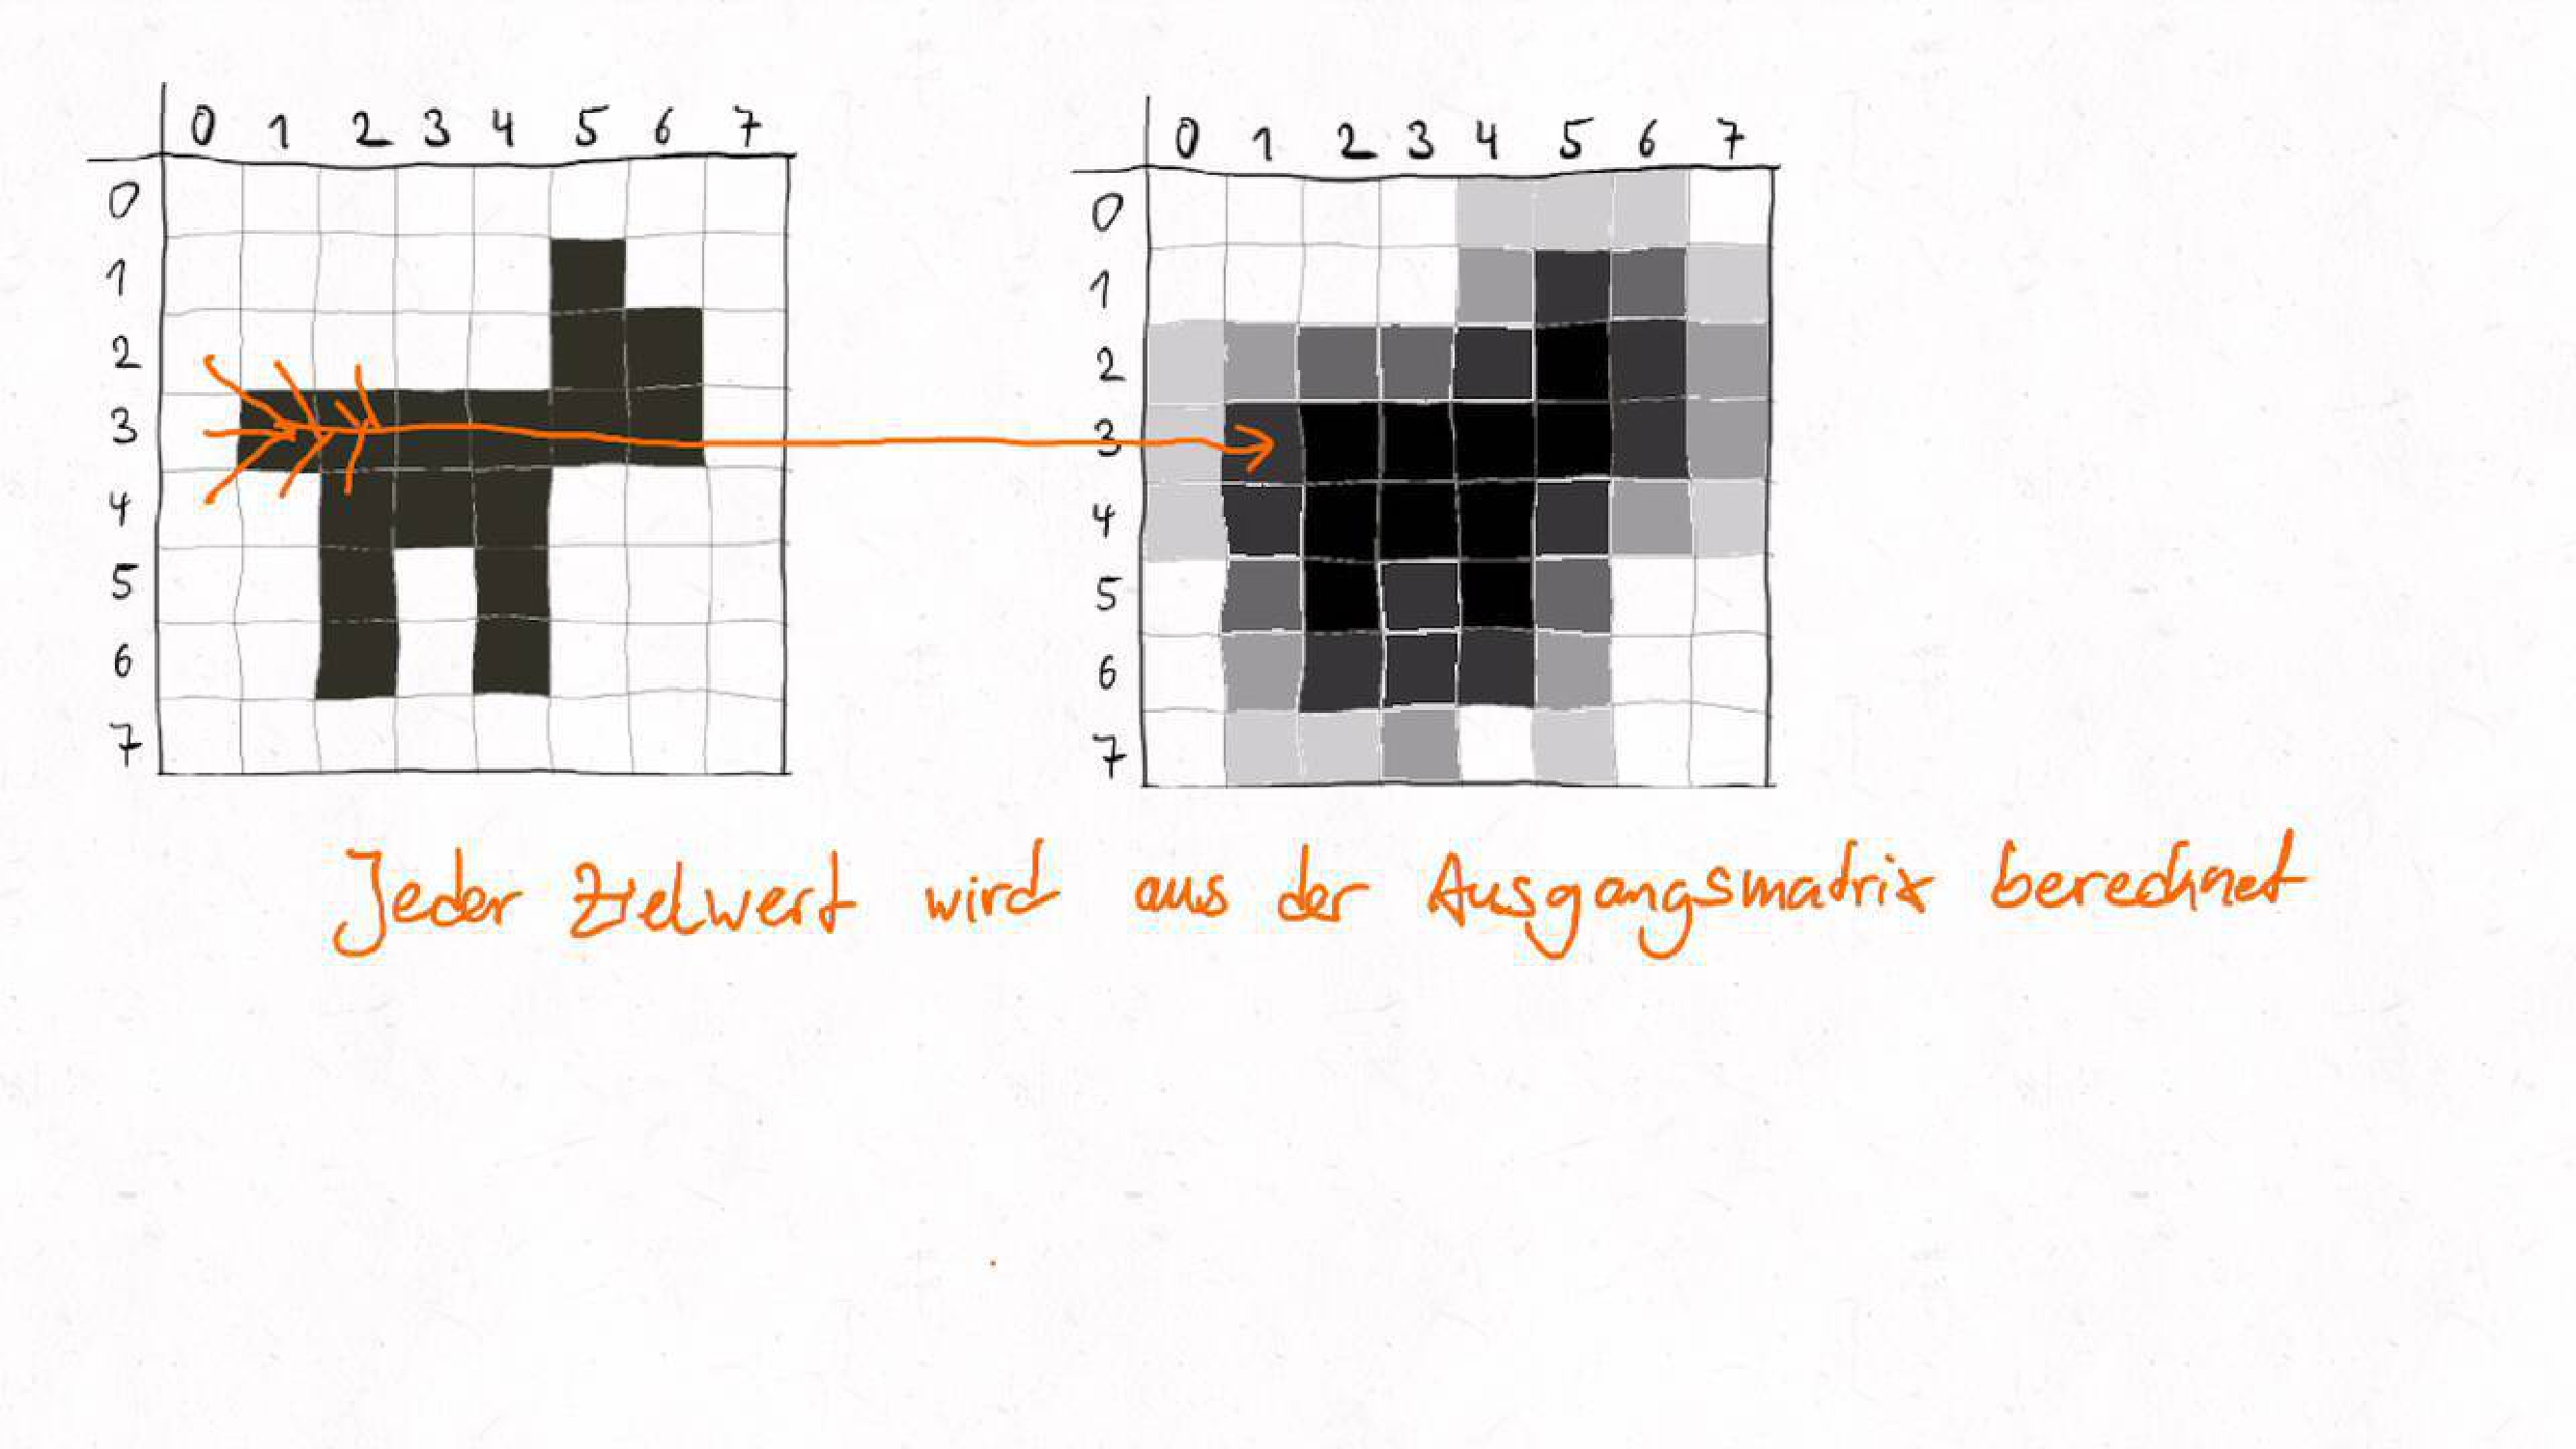 0 1 2 3 4 5 6 7
0
1
2
3
4
5
6
7
0 1 2 3 4 5 6 7
0
1
2
3
4
5
6
7
Jeder Zielwert wird aus der Ausgangsmatrix berechnet